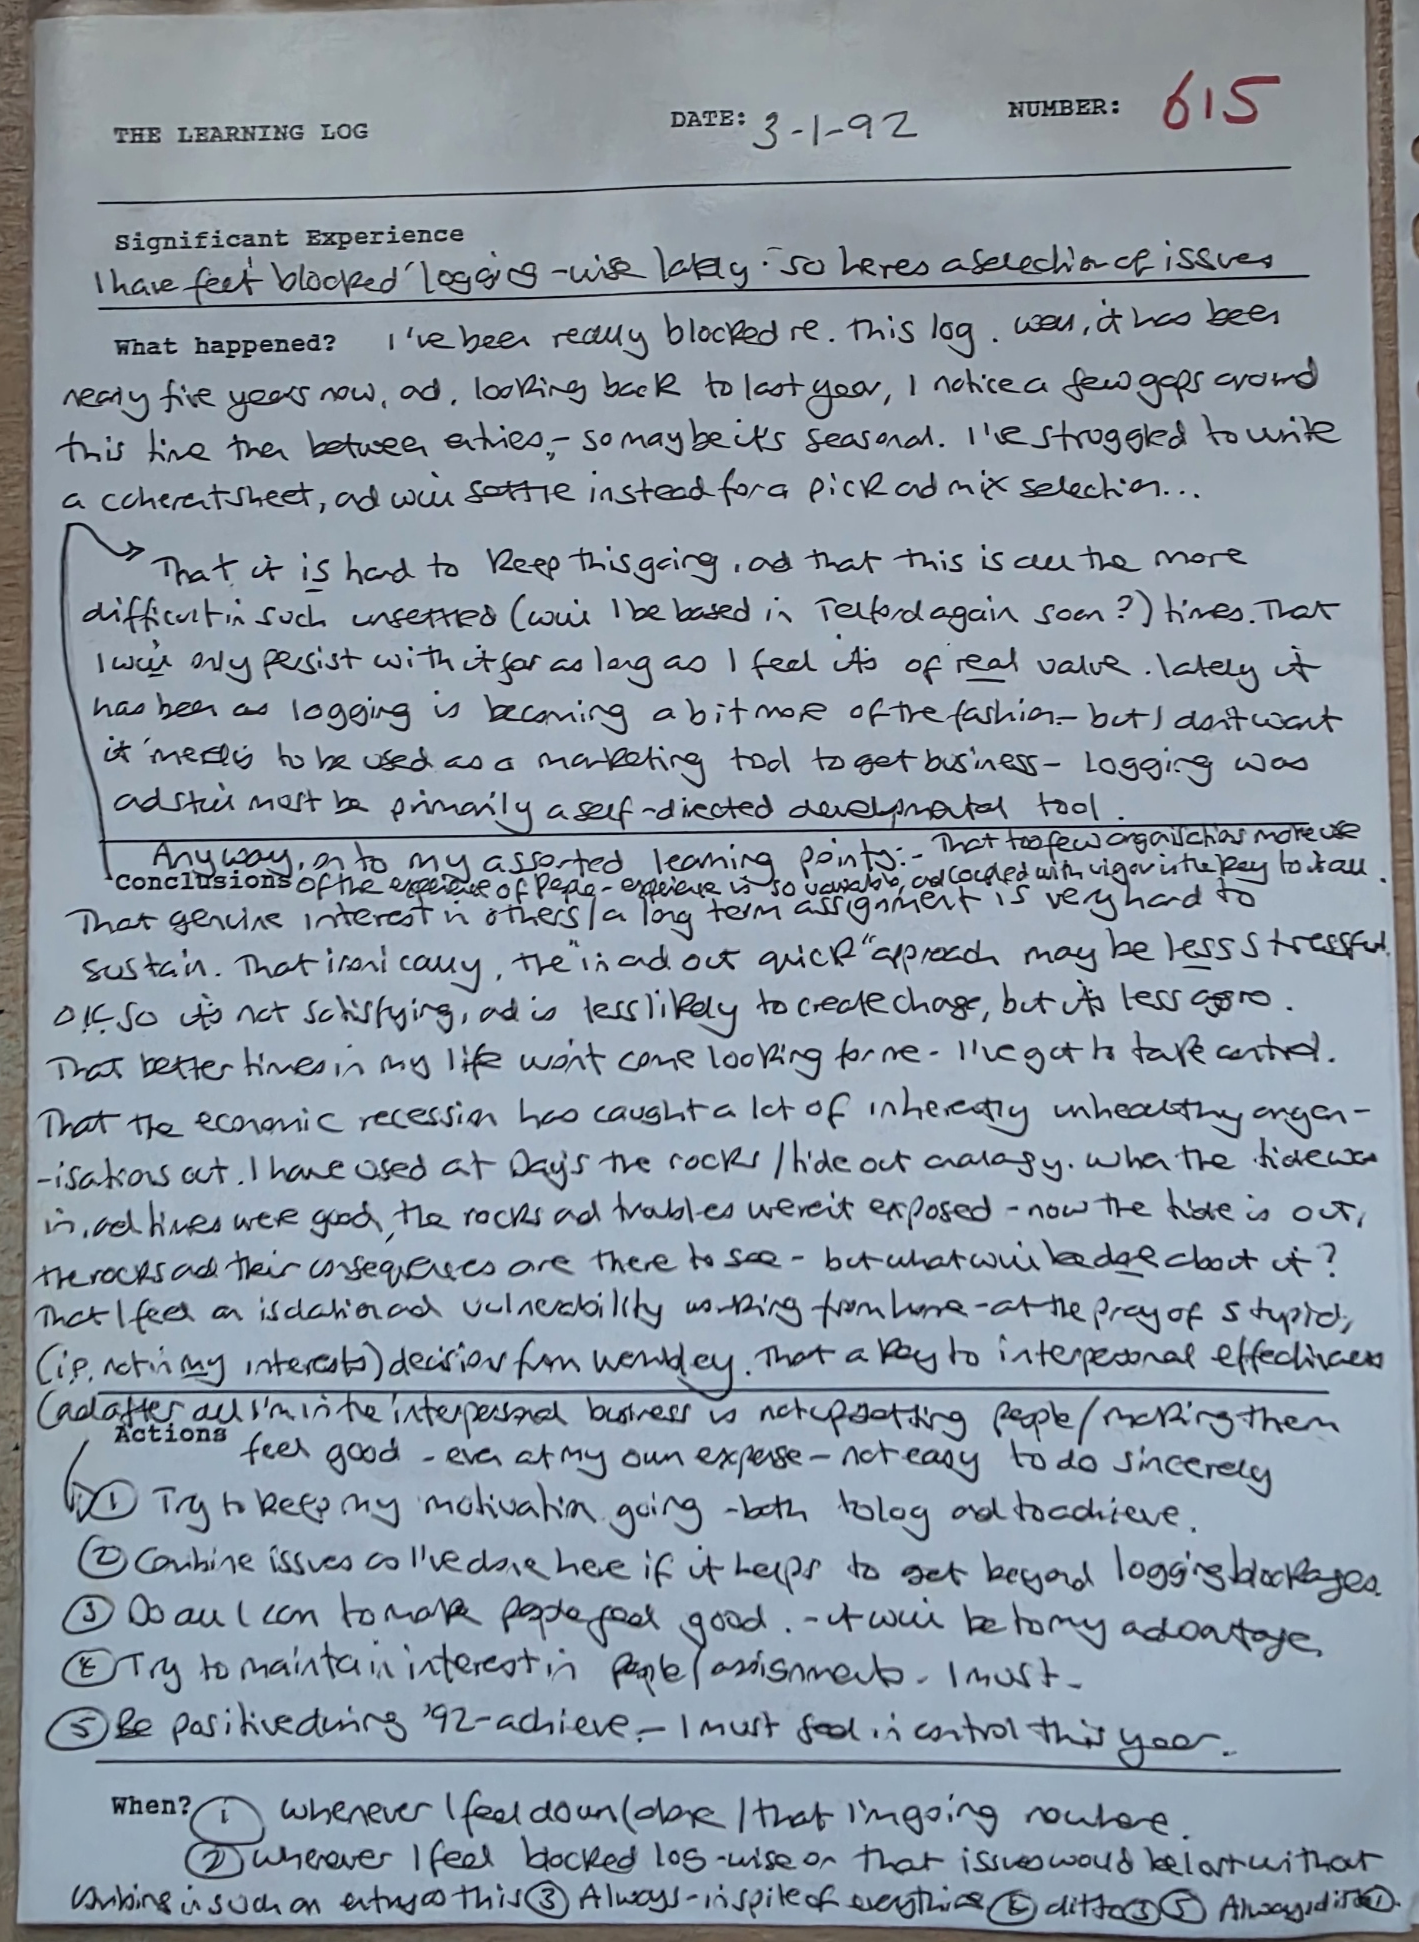 THE LEARNING LOG DATE: 3-1-92 NUMBER: 615
Significant Experience
I have felt 'blocked' logging-wise lately - so heres a selection of issues
What happened? I've been really blocked re. this log. Well, it has been
nearly five years now, and, looking back to last year, I notice a few gaps around
this time then between entries, - so maybe it's seasonal. I've struggled to write
a coherent sheet, and will settle instead for a pick and mix selection...
That it is hard to keep this going, and that this is all the more
difficult in such unsettled (will I be based in Telford again soon?) times. That
I will only persist with it for as long as I feel it's of real value. Lately it
has been as logging is becoming a bit more of the fashion - but I don't want
it merely to be used as a marketing tool to get business - Logging was
and still must be primarily a self-directed developmental tool.
Anyway, on to my assorted learning points:- That too few organisations make use
Conclusions of the experience of people - experience is so valuable, and coupled with vigor is the key to it all.
That genuine interest in others/a long term assignment is very hard to
sustain. That ironically, the "in and out quick" approach may be less stressful.
O.K. so it's not satisfying, and is less likely to create change, but it's less aggro.
That better times in my life won't come looking for me - I've got to take control.
That the economic recession has caught a lot of inherently unhealthy organ-
-isations out. I have used at Day's the rocks/tide out analogy. When the tide was
in, and times were good, the rocks and troubles weren't exposed - now the tide is out,
the rocks and their consequences are there to see - but what will be done about it?
That I feel an isolation and vulnerability working from home - at the prey of stupid,
(i.e. not in my interests) decisions from Wembley. That a key to interpersonal effectiveness
(and after all I'm in the interpersonal business is not upsetting people/making them
Actions feel good - even at my own expense - not easy to do sincerely
① Try to keep my motivation going - both to log and to achieve.
② Combine issues as I've done here if it helps to get beyond logging blockages.
③ Do all I can to make people feel good. - it will be to my advantage.
④ Try to maintain interest in people/assignments - I must -
⑤ Be positive during '92 - achieve. - I must feel in control this year.
When? ① Whenever I feel down/alone/that I'm going nowhere.
② Whenever I feel blocked log-wise or that issues would be lost without
combining in such an entry as this ③ Always - in spite of everything ④ ditto ③ ⑤ Always, ditto ①.